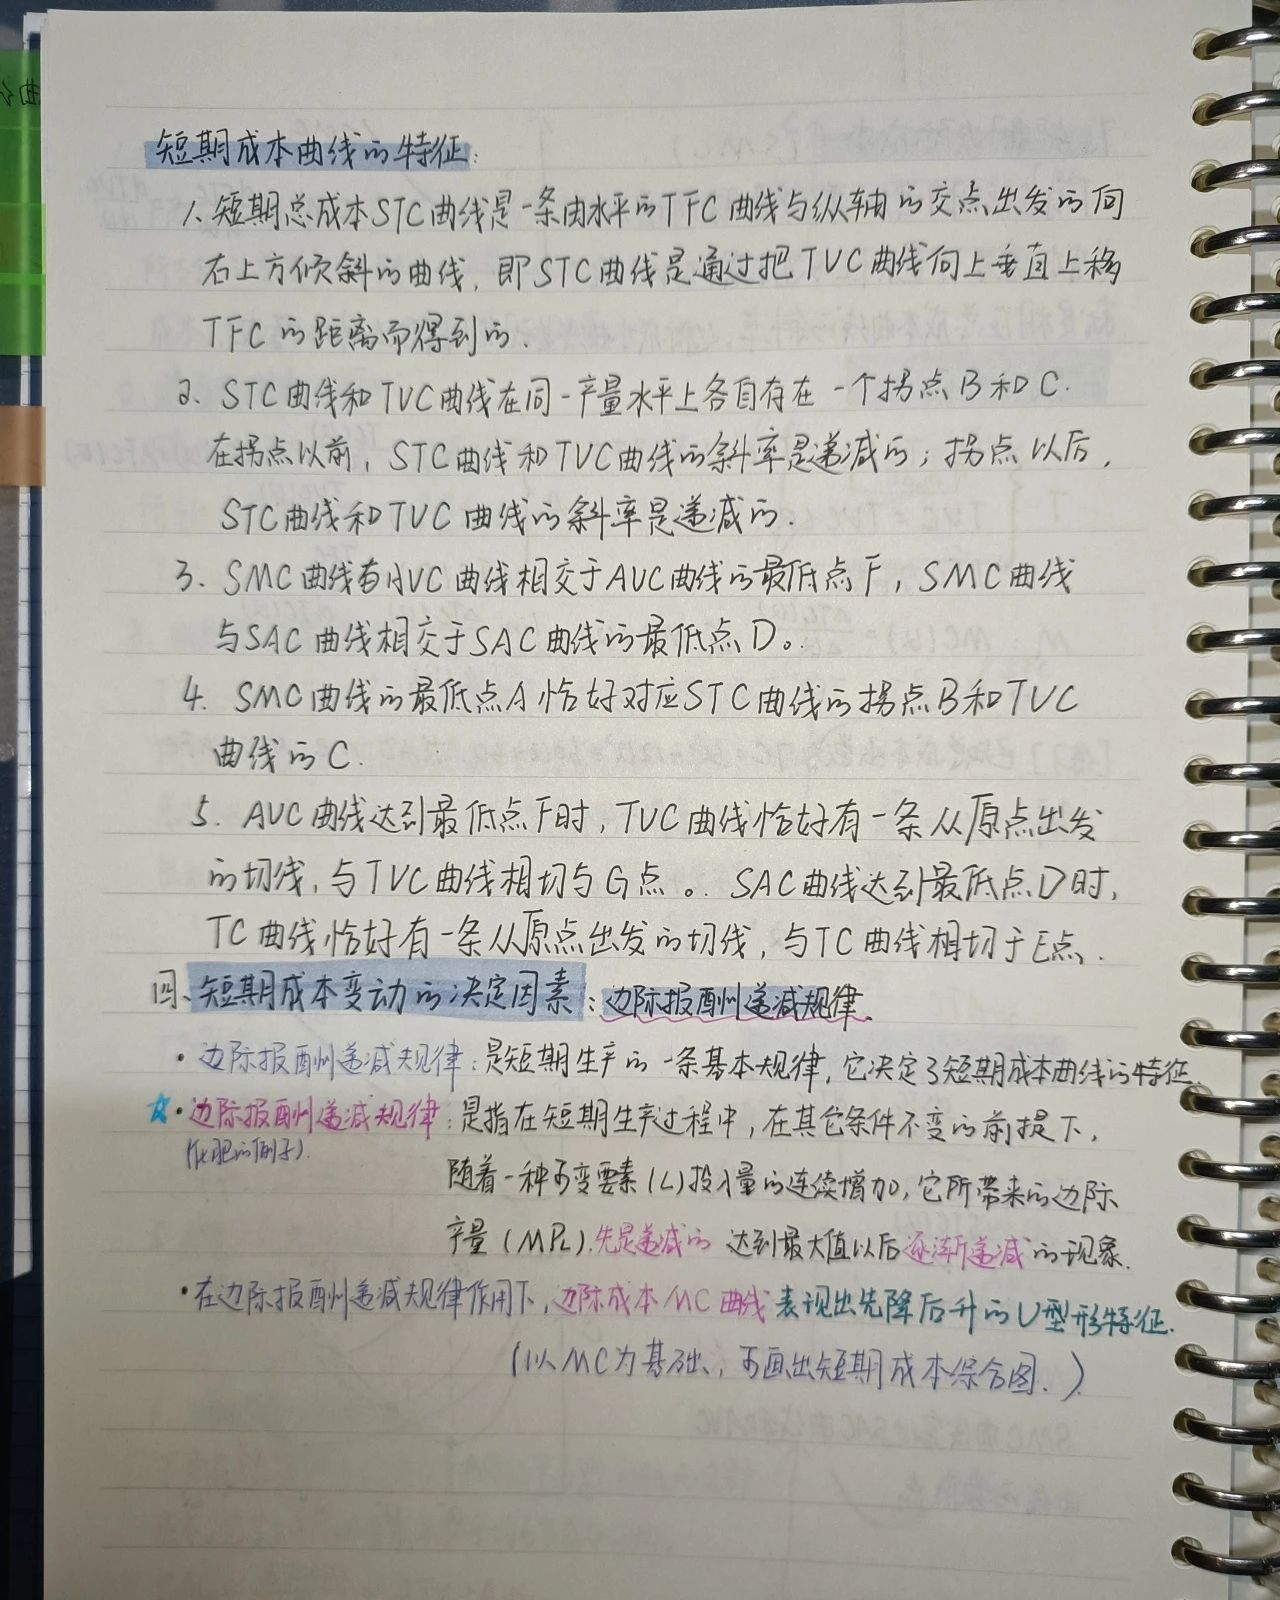 短期成本曲线的特征:
1、短期总成本STC曲线是一条由水平的TFC曲线与纵轴的交点出发的向
右上方倾斜的曲线，即STC曲线是通过把TVC曲线向上垂直上移
TFC的距离而得到的.
2、STC曲线和TVC曲线在同一产量水平上各自存在一个拐点B和C.
在拐点以前，STC曲线和TVC曲线的斜率是递减的；拐点以后，
STC曲线和TVC曲线的斜率是递减的.
3. SMC曲线与AVC曲线相交于AVC曲线的最低点F，SMC曲线
与SAC曲线相交于SAC曲线的最低点D。
4. SMC曲线的最低点A恰好对应STC曲线的拐点B和TVC
曲线的C.
5. AVC曲线达到最低点F时，TVC曲线恰好有一条从原点出发
的切线，与TVC曲线相切与G点。SAC曲线达到最低点D时，
TC曲线恰好有一条从原点出发的切线，与TC曲线相切于E点.
四、短期成本变动的决定因素：边际报酬递减规律.
·边际报酬递减规律：是短期生产的一条基本规律，它决定了短期成本曲线的特征
☆·边际报酬递减规律：是指在短期生产过程中，在其它条件不变的前提下，
(化肥的例子).
随着一种可变要素(L)投入量的连续增加，它所带来的边际
产量(MPL).先是递减的 达到最大值以后逐渐递减的现象.
·在边际报酬递减规律作用下，边际成本MC曲线表现出先降后升的U型形特征.
(以MC为基础，可画出短期成本综合图.)